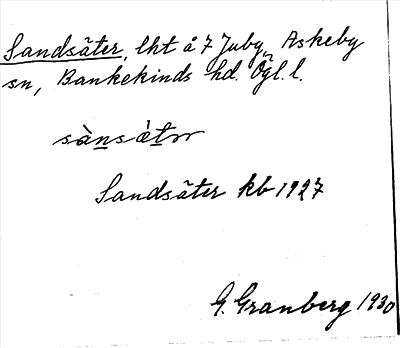 Sandsäter, lht å 7 Juby, Askeby
sn, Bankekinds hd. Ögl. l.
sànsàtər
Sandsäter kb 1927
G. Granberg 1930